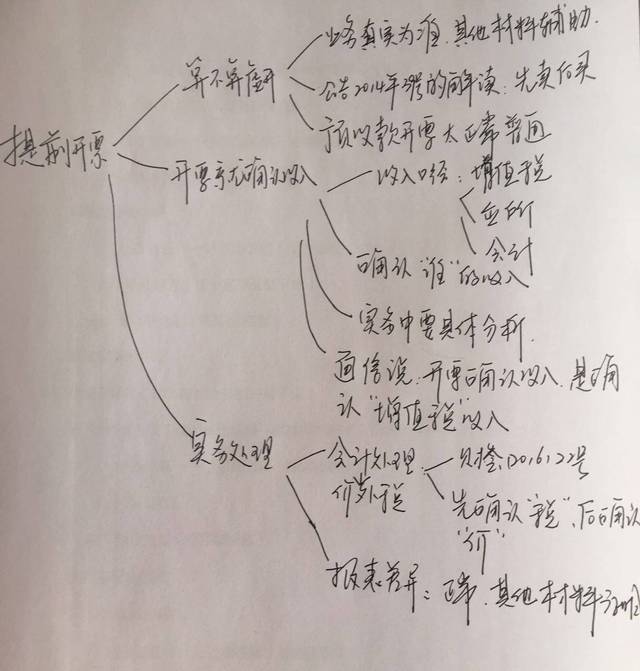 业务真实为准,其他材料辅助.
算不算虚开
公告2014年39号的解读:先卖后买
预收款开票太正常普通
提前开票
开票系统确认收入
收入口径:增值税
企所
会计
确认“谁”的收入
实务中要具体分析.
通俗说:开票确认收入,是确
认“增值税”收入
实务处理
会计处理
价外税
财会[2016]22号
先确认“税”,后确认
“价”
报表差异:正常.其他材料